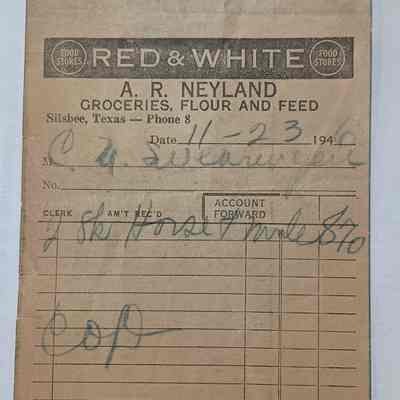 FOOD STORES RED & WHITE FOOD STORES
A. R. NEYLAND
GROCERIES, FLOUR AND FEED
Silsbee, Texas — Phone 8
Date 11-23 1940
M C. U.
No.
CLERK AM'T REC'D ACCOUNT FORWARD
2 Sks Horse & Mule 870
COD